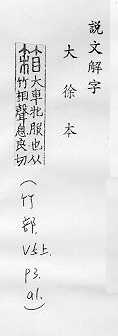 說文解字
大徐本
箱 大車牝服也从
竹相聲息良切
(竹部. V5上. P3. a1.)